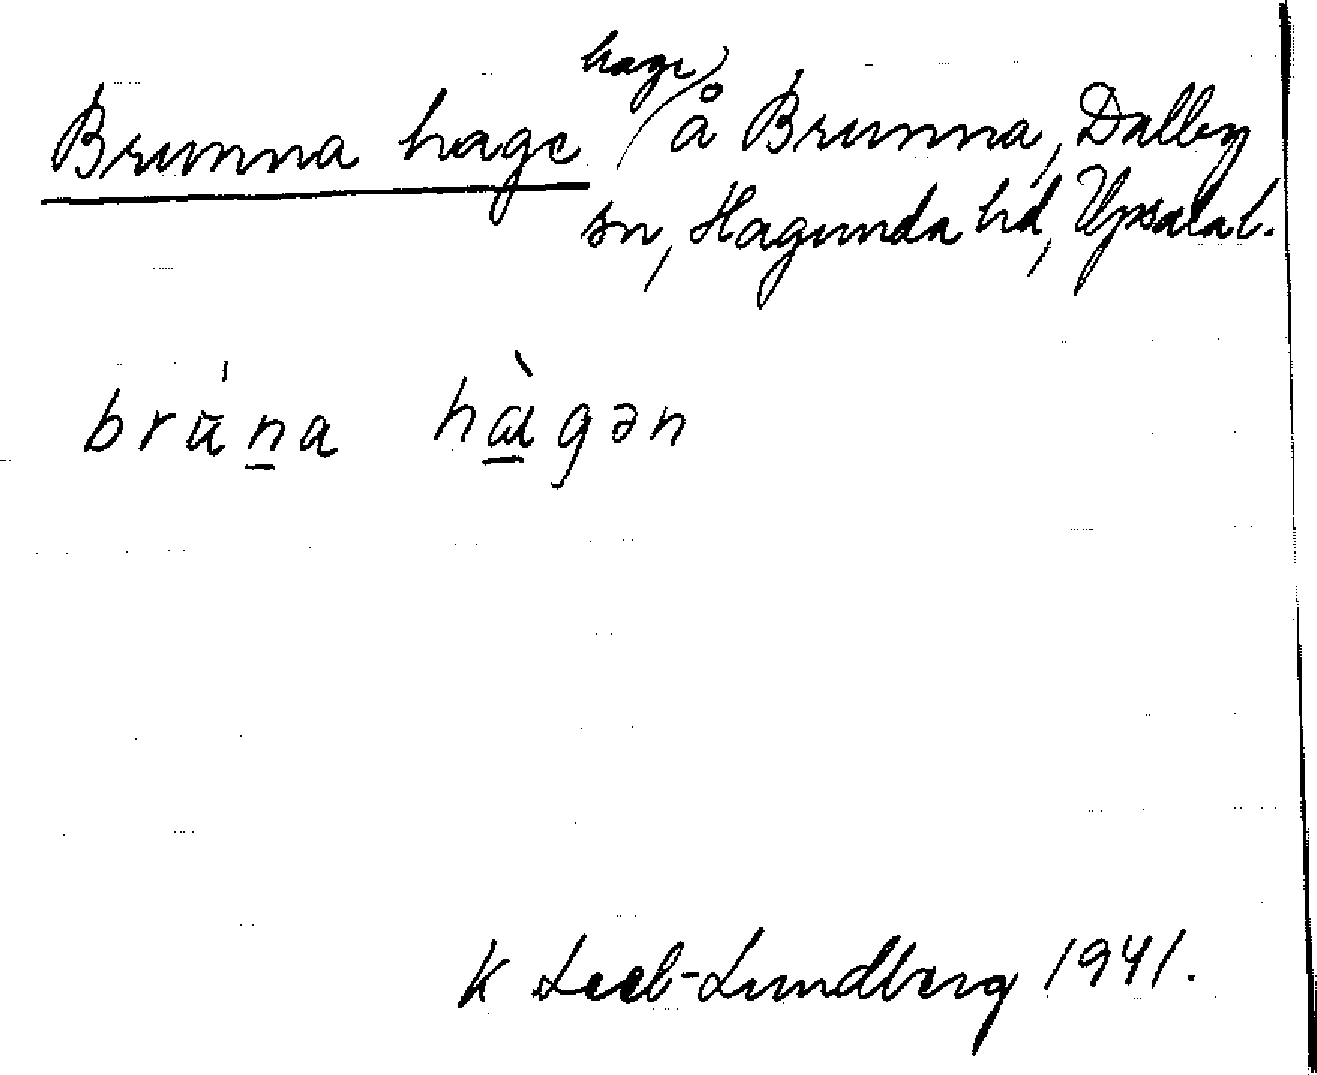 Brunna hage hage å Brunna, Dalby
sn, Hagunda hd, Upsala l.
hàgən
K Leeb-Lundberg 1941.